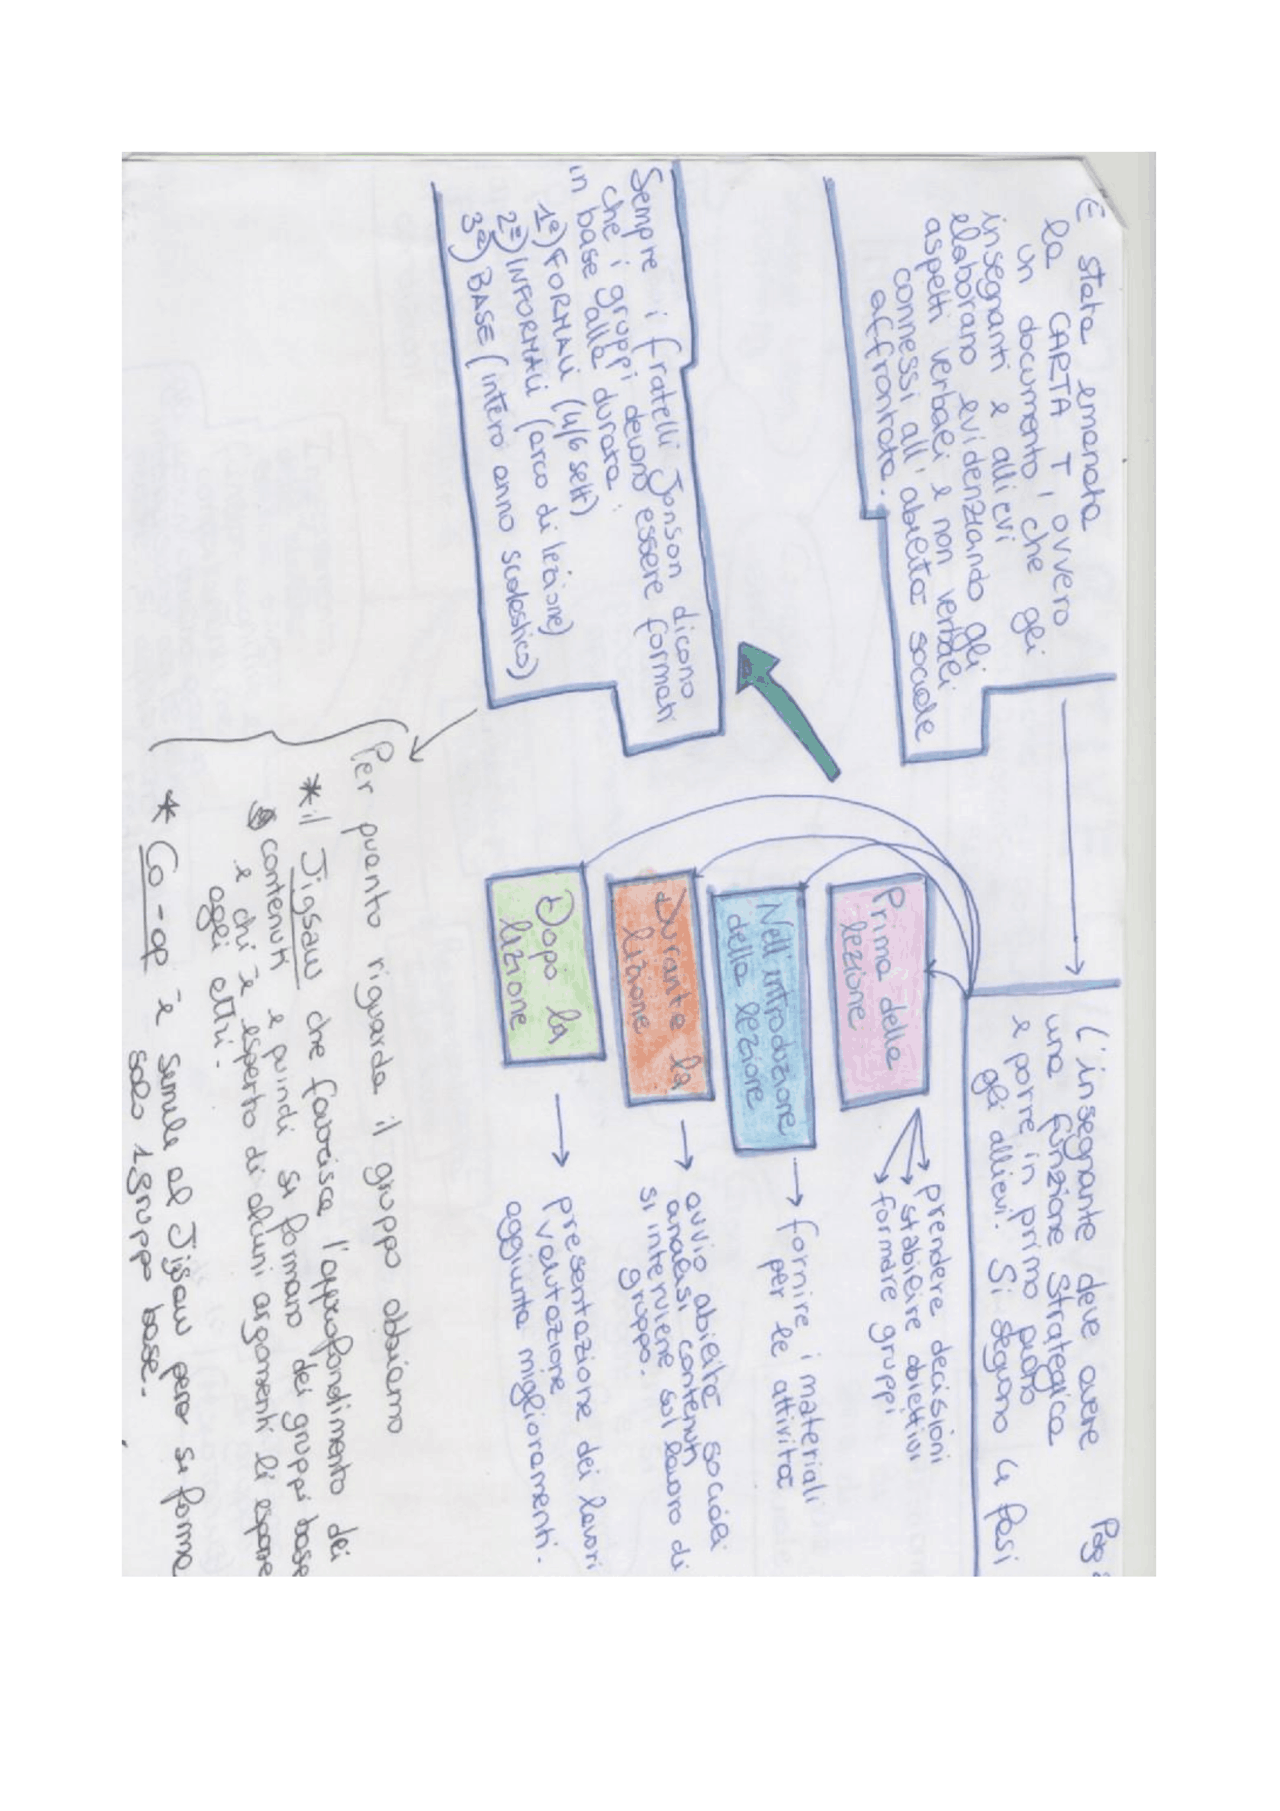 È stata emanata
la CARTA T, ovvero
un documento che gli
insegnanti e allievi
elaborano evidenziando gli
aspetti verbali e non verbali
connessi all'abilità sociale
affrontata.
Pag
L'insegnante deve avere
una funzione strategica
e porre in primo piano
gli allievi. Si seguono 4 fasi
Prima della
lezione
prendere decisioni
stabilire obiettivi
formare gruppi
Nell'introduzione
della lezione
fornire i materiali
per le attività
Durante la
lezione
avvio abilità sociali
analisi contenuti
si interviene sul lavoro di
gruppo.
Dopo la
lezione
presentazione dei lavori
valutazione
aggiunta miglioramenti.
Sempre i fratelli Jonson dicono
che i gruppi devono essere formati
in base alla durata:
1°) FORMALI (4/6 sett)
2°) INFORMALI (arco di lezione)
3°) BASE (intero anno scolastico)
Per quanto riguarda il gruppo abbiamo
* il Jigsaw che favorisce l'approfondimento dei
contenuti e quindi si formano dei gruppi base
e chi è esperto di alcuni argomenti li espone
agli altri.
* Co-op è simile al Jigsaw però si forma
solo 1 gruppo base.